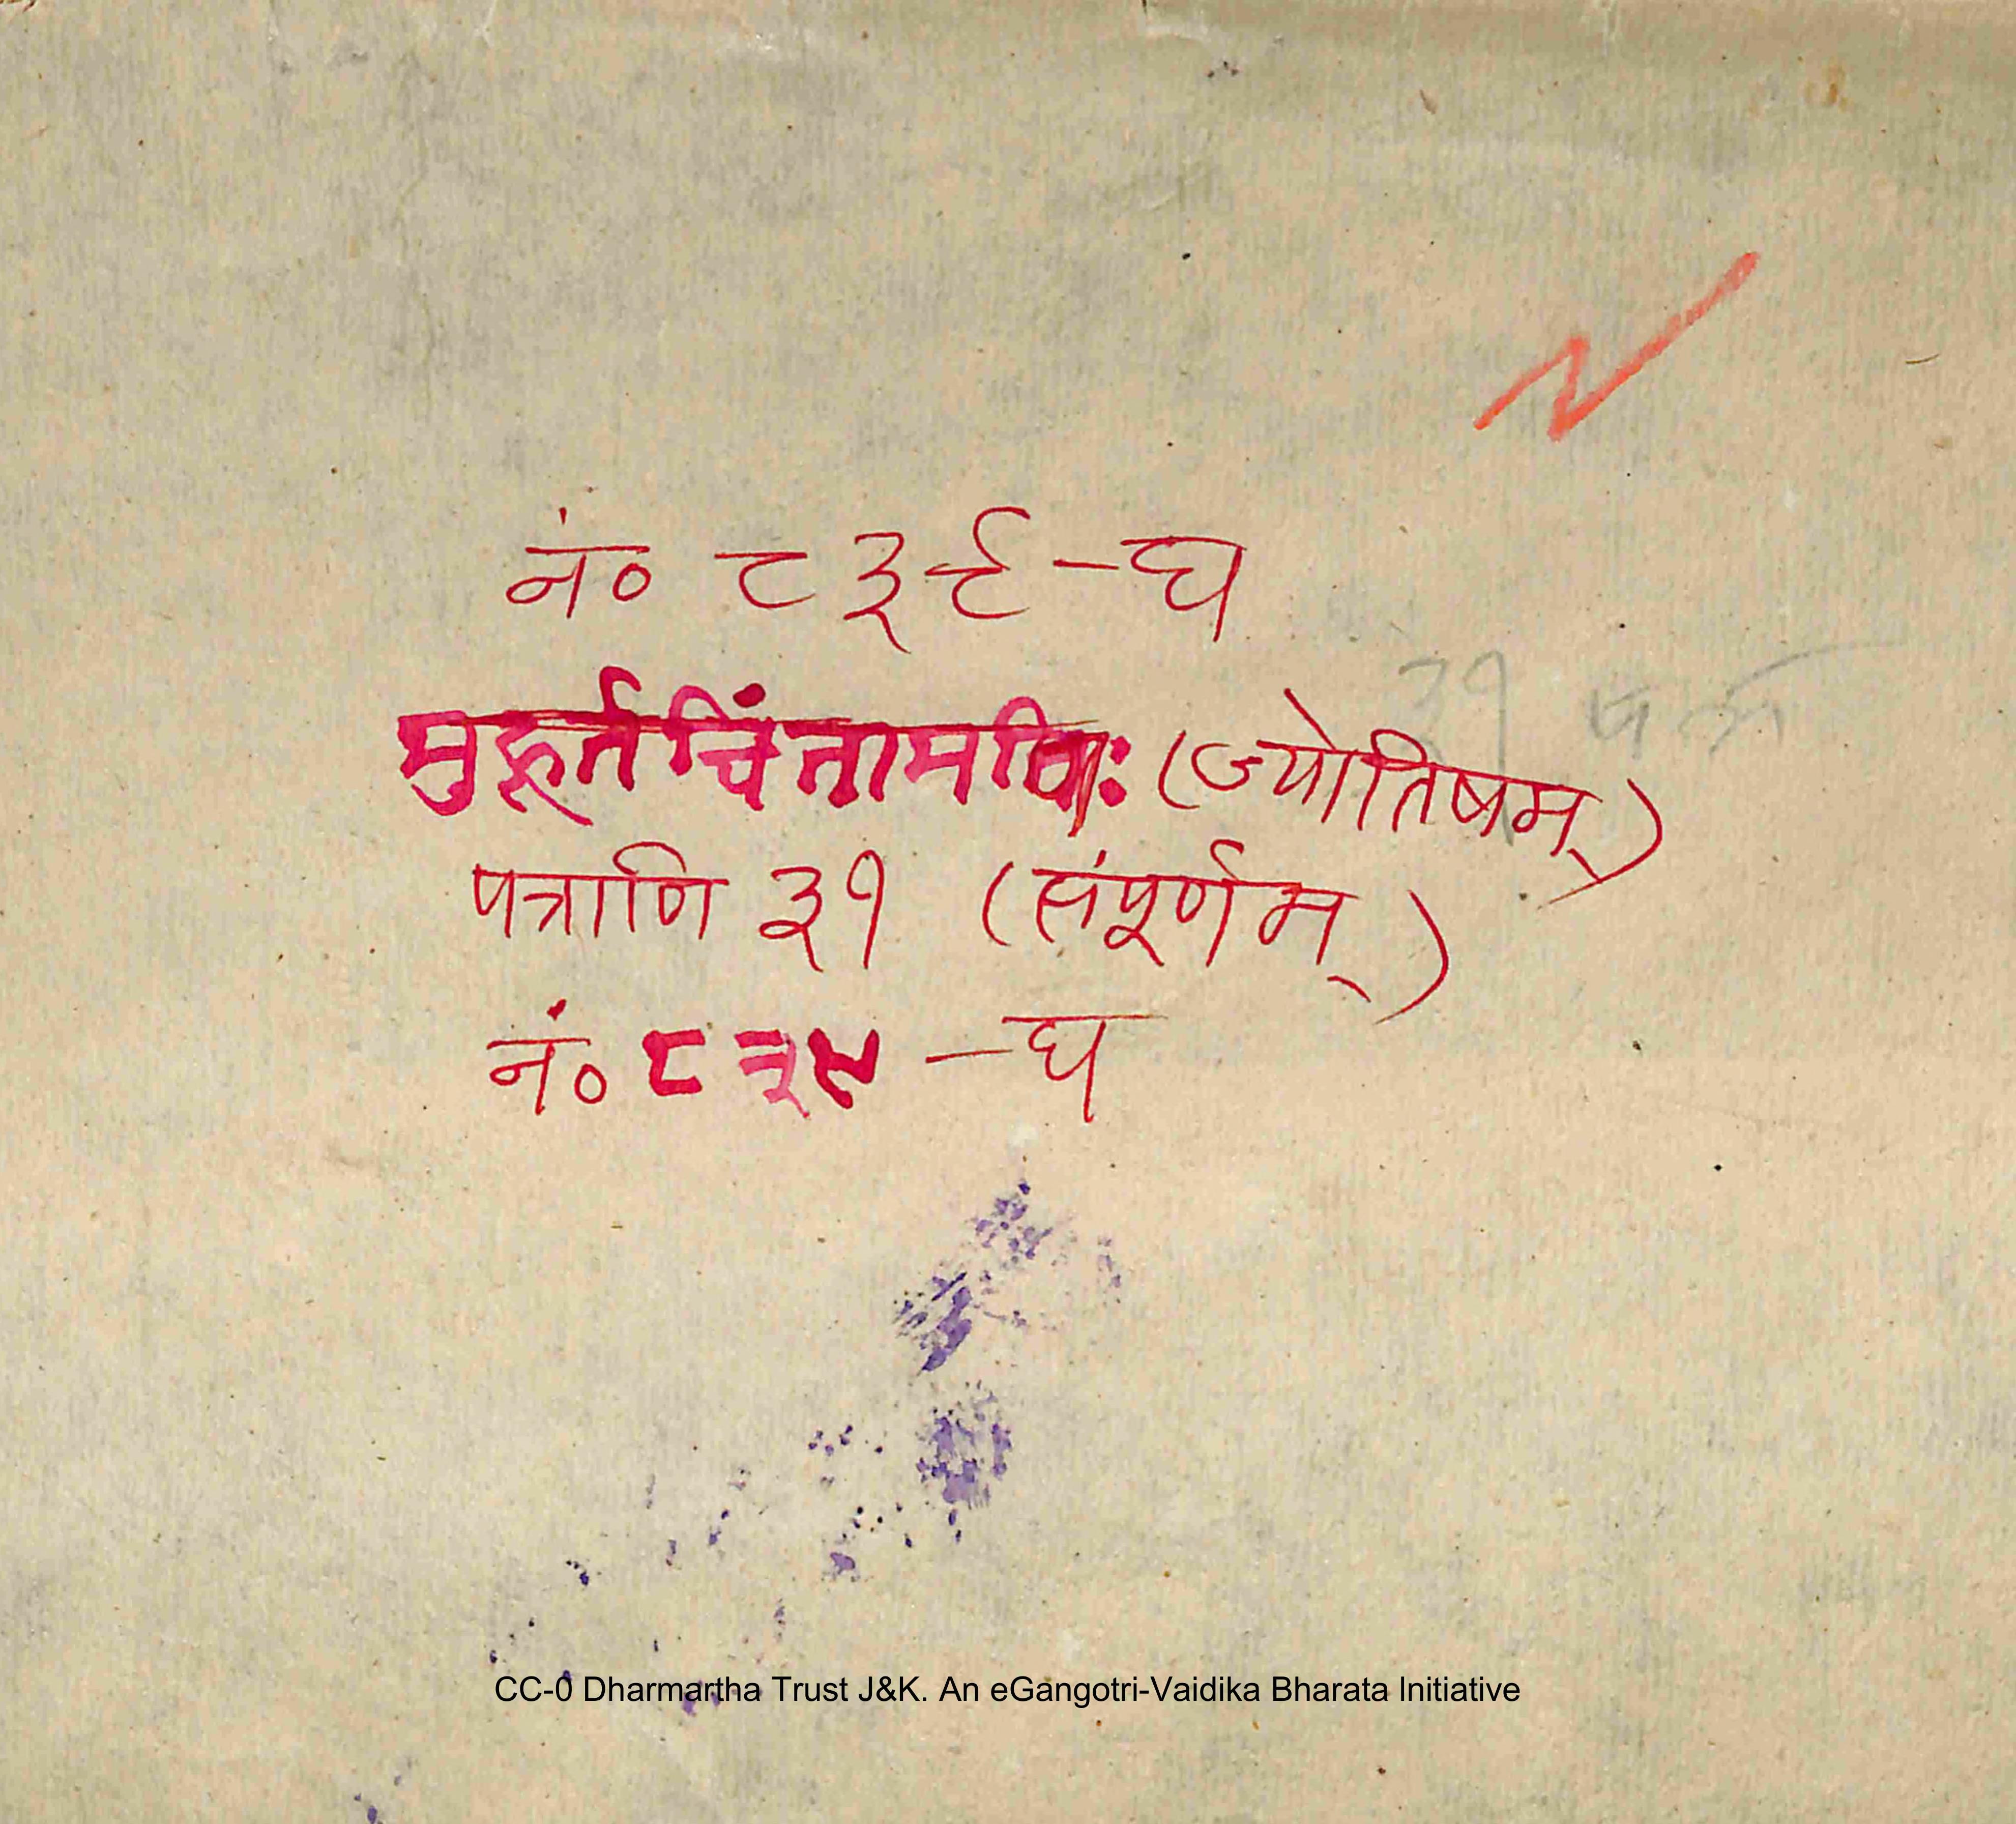 नं० ८३९-घ
मुहूर्तचिंतामणिः (ज्योतिषम्)
पत्राणि ३१ (संपूर्णम्)
नं० ८३९ -घ
३१
CC-0 Dharmartha Trust J&K. An eGangotri-Vaidika Bharata Initiative